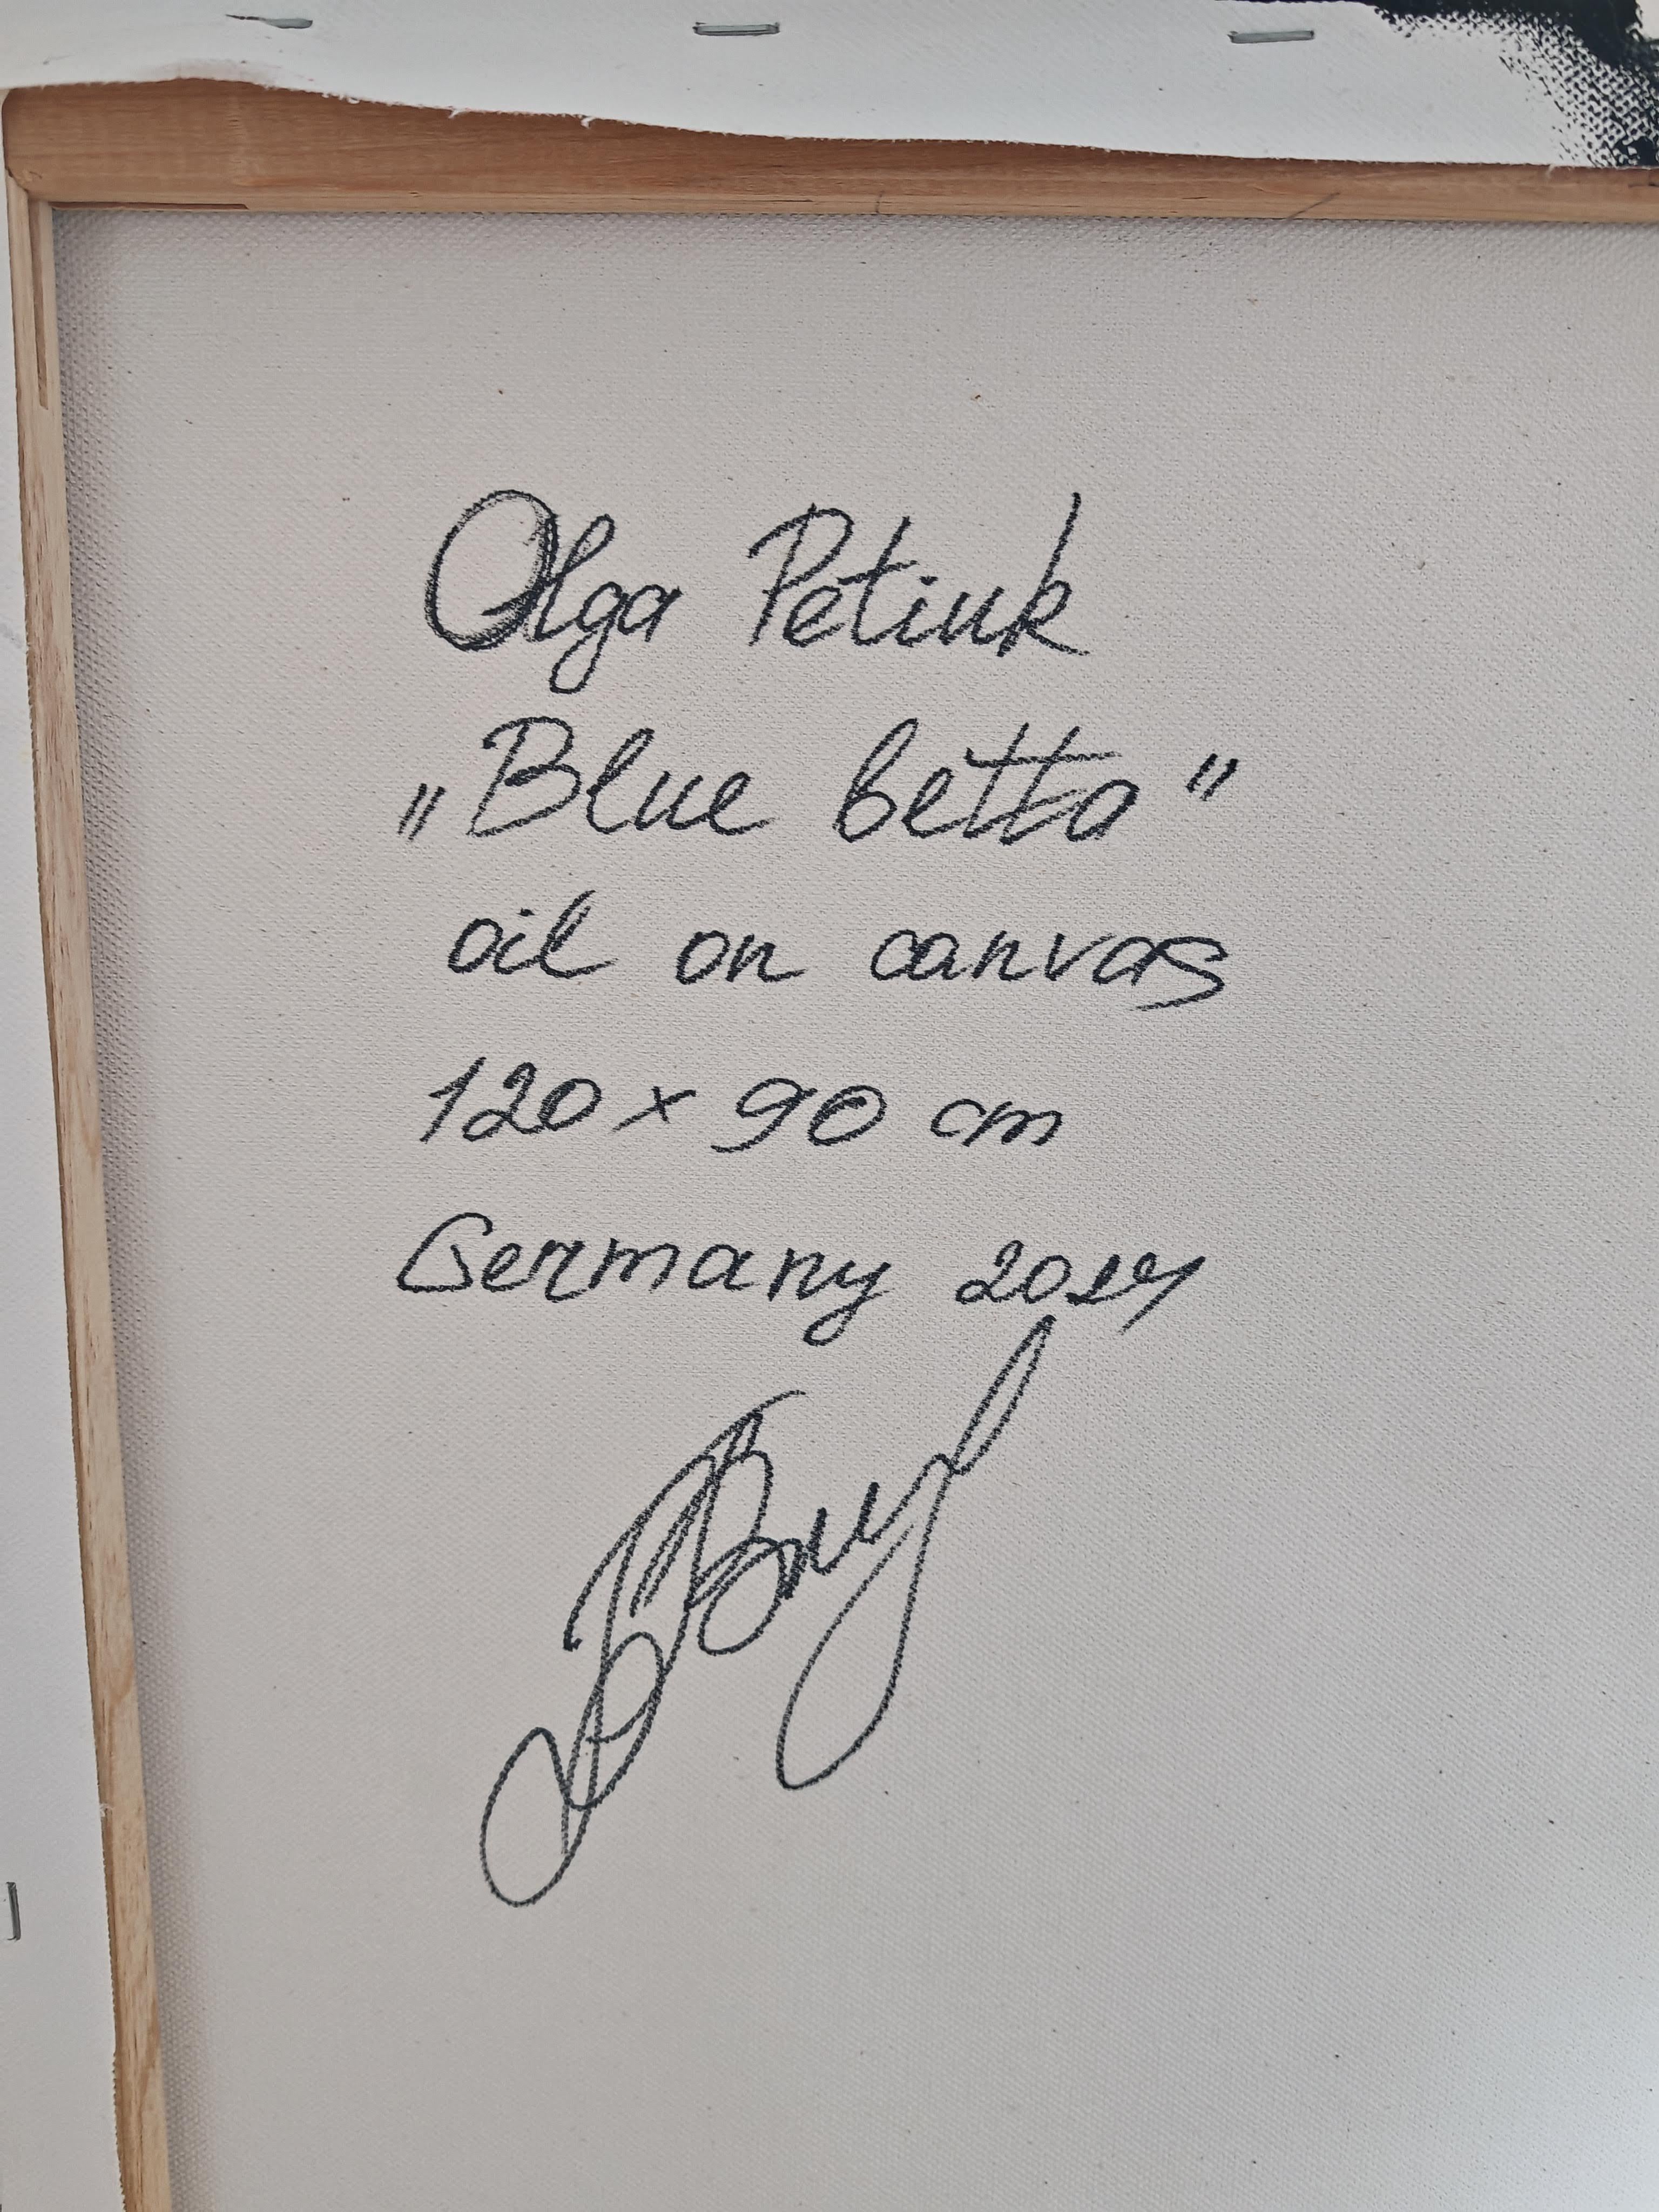 Olga Petiuk
„Blue betta"
oil on canvas
120 x 90 cm
Germany